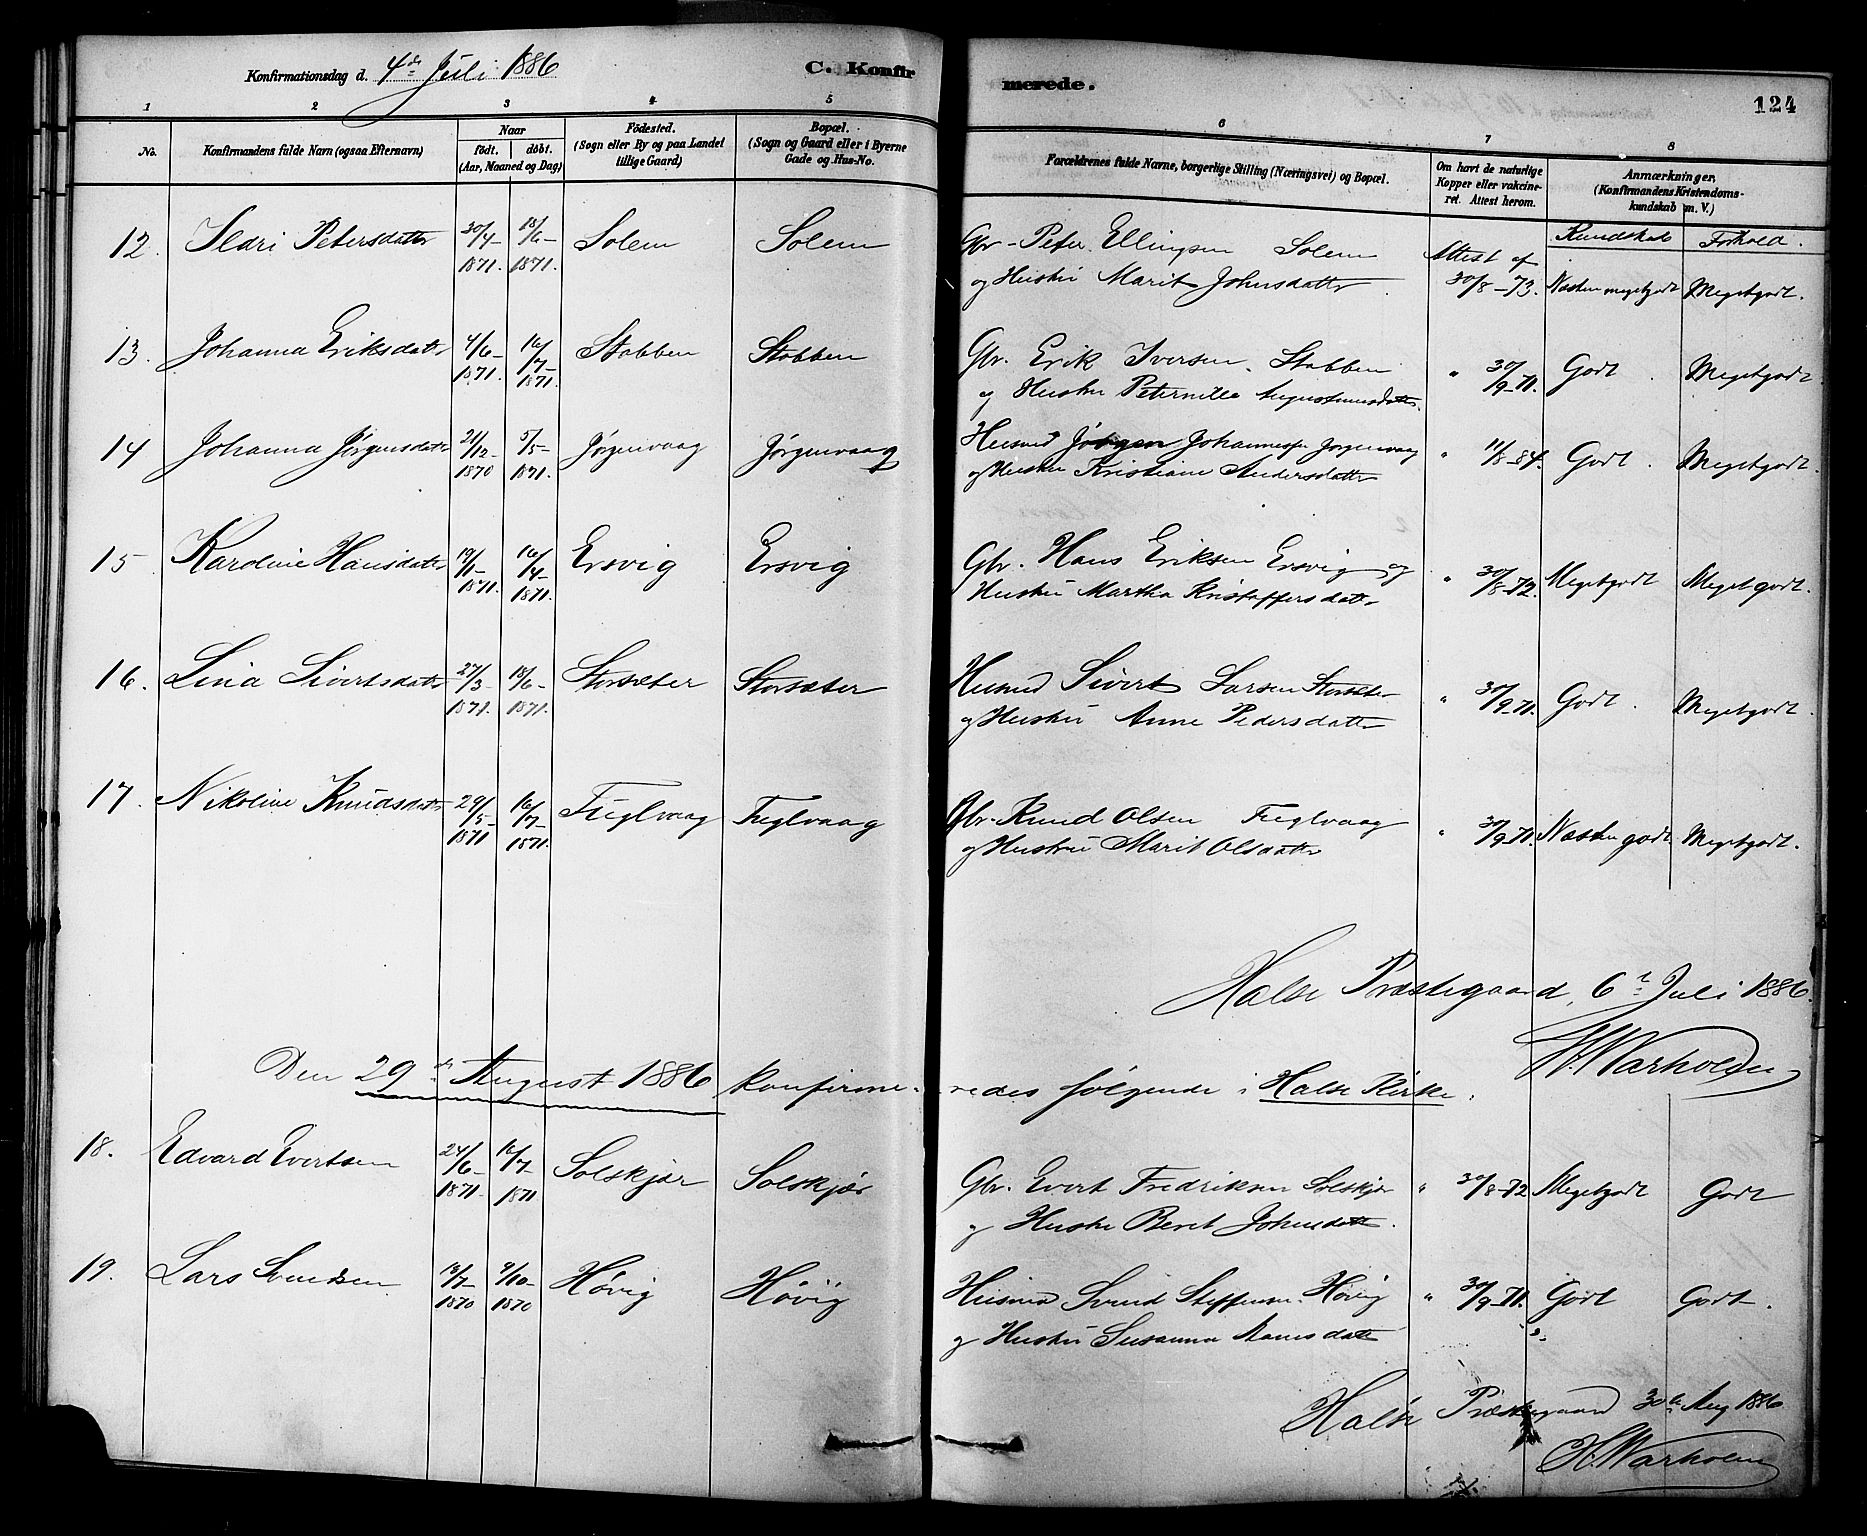 Konfirmationsdag d. 4de Juli 1886 C. Konfirmerede. 124
1 2 3 4 5 6 7 8
No. Konfirmandens fulde Navn (ogsaa Efternavn) Naar født. døbt. (Aar, Maaned og Dag) Fødested. (Sogn eller By og paa Landet tillige Gaard) Bopæl. (Sogn og Gaard eller i Byerne Gade og Hus-No. Forældrenes fulde Navne, borgerlige Stilling (Næringsvei) og Bopæl. Om havt de naturlige Kopper eller vakcineret. Attest herom. Anmærkninger, (Konfirmandens Kristendomskundskab m. V.)
Kundskab Forhold.
12. Ildri Petersdatter 30/4-1871. 18/6-1871. Solem Solem Gbr. Peter Ellingsen Solem
og Hustru Marit Johnsdatter. Attest af 30/8-73. Næsten megetgodt Megetgodt.
13. Johanna Eriksdatter 4/6-1871. 16/7-1871. Stobben Stobben Gbr. Erik Iversen Stobben
og Hustru Peternille Augustinusdatter. " 30/9-71. Godt. Megetgodt.
14 Johanna Jørgensdatter 21/12-1870 5/5-1871. Jørgenvaag Jørgenvaag Husmd Jørgen Johannessen Jørgenvaag
og Hustru Kristiane Andersdatter " 11/8-84. Godt. Megetgodt.
15 Karoline Hansdatter 19/1-1871. 16/4-1871. Ersvig Ersvig Gbr. Hans Eriksen Ersvig og
Hustru Martha Kristoffersdatter " 30/8-72. Megetgodt Megetgodt.
16. Lina Sivertsdatter 27/3-1871. 18/6-1871. Storsæter Storsæter Husmd Sivert Larsen Storsæter
og Hustru Anne Pedersdatter " 30/9-71. Godt. Megetgodt.
17. Nikoline Knudsdatter 29/5-1871 16/7-1871. Fuglvaag Fuglvaag Gbr. Knud Olsen Fuglvaag
og Hustru Marit Olsdatter " 30/9-71. Næsten godt. Megetgodt.
Halse Præstegaard, 6te Juli 1886.
H. Warholm
Den 29de August 1886 konfirmeredes følgende i Halse Kirke.
18. Edvard Evertsen 24/6-1871. 16/7-1871 Solskjær Solskjær Gbr. Evert Fredriksen Solskjær
og Hustru Beret Johnsdatter. " 30/8-72 Megetgodt Godt
19. Lars Svendsen 18/7-1870 9/10-1870 Høvig Høvig Husmd Svend Steffensen Høvig
og Hustru Susanna datter " 30/9-71. Godt Godt.
Halse Præstegaard 30te Aug 1886
H. Warholm